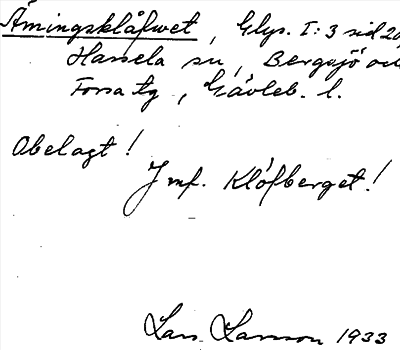 Åmingsklåfwet, Glys. I:3 sid 20
Hassela sn, Bergsjö och
Forsa tg, Gävleb. l.
Obelagt!
Jmf. Klöfberget!
Lars Larsson 1933